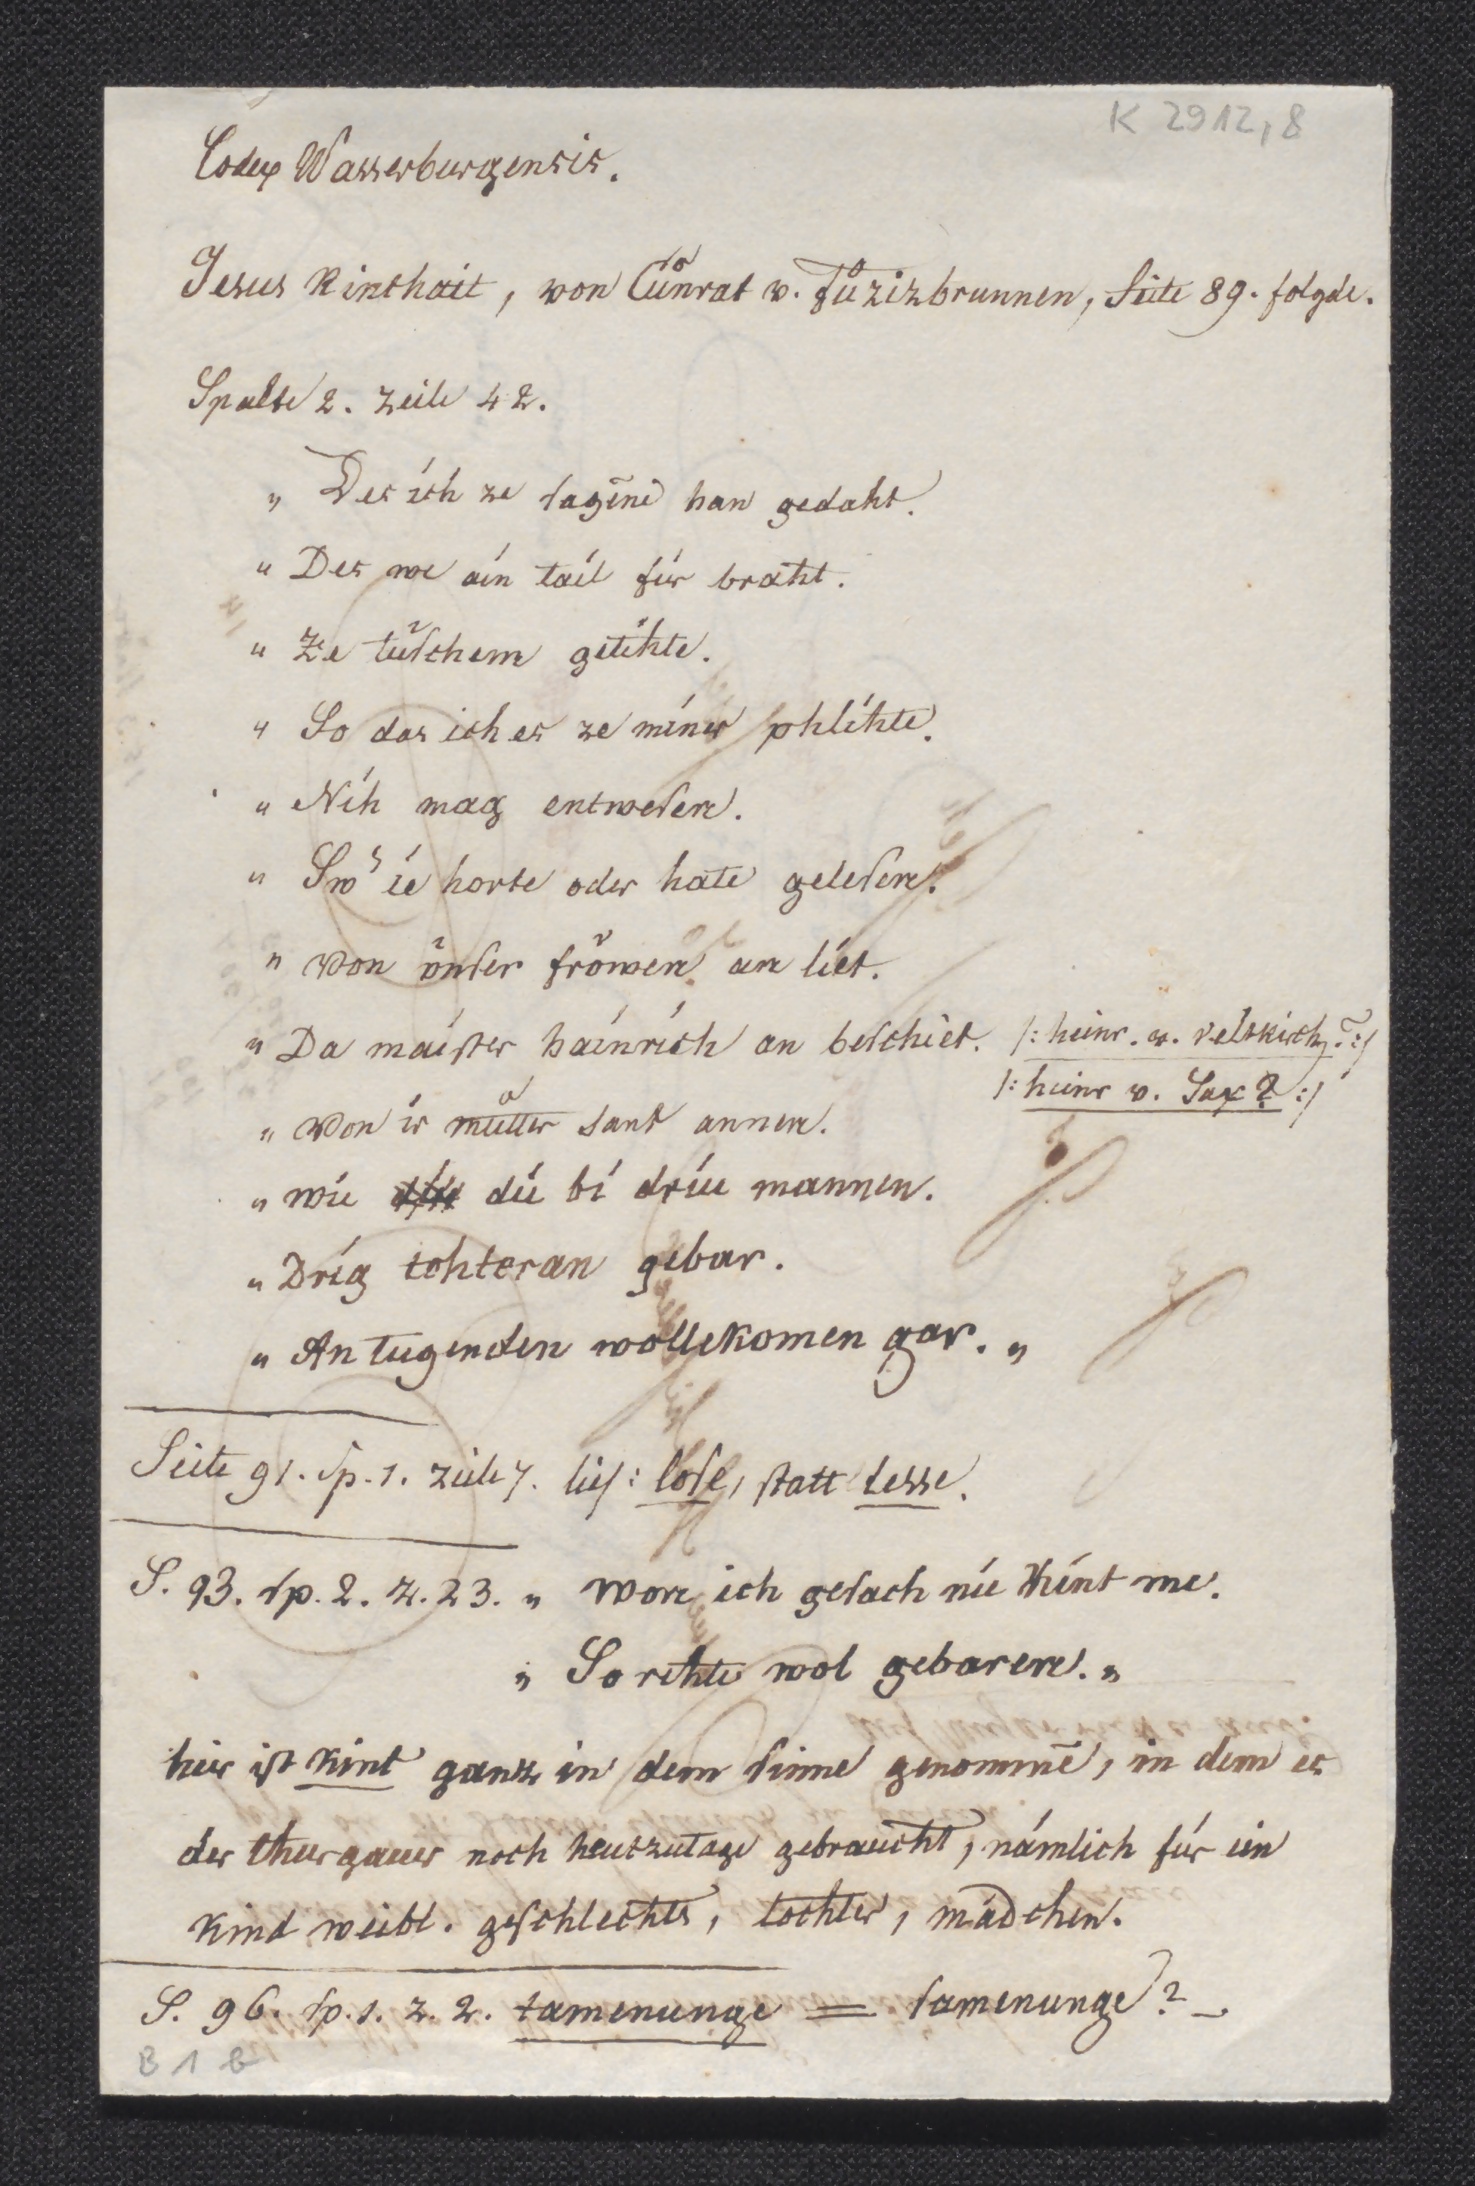 K 2912,8
Codex Wasserburgensis.
Jesus kinthait, von Cůnrat v. Fůzizbrunnen, Seite 89. folgde.
Spalte 2. zeile 42.
„ Des ich ze sagēne han gedaht.
„ Des we ain tail für braht.
„ Ze tüschem getihte.
„ So das ich es ze miner phlihte.
„ Nih mag entwesen.
„ Sw ie horte oder hate gelesen.
„ von vnser frowen an liet.
„ Da maister hainrich an beschiet. /: heinr. v. veltkirch? :/
/: heinr v. Sax? :/
„ von ir můtter sant annen.
„ wie die bi drin mannen.
„ Drig tohteran gebar.
„ An tugenden vollekomen gar. „
Seite 91. sp. 1. zeile 7. lies: lose, statt lesse.
S. 93. sp. 2. z. 23. „ won ich gesach nie kint me.
„ So rehte wol gebaren. „
hier ist kint ganz in dem sinne genommē, in dem es
der thurgauer noch heutzutage gebraucht, nämlich für ein
kind weibl. geschlechts, tochter, mädchen.
S. 96. sp. 1. z. 2. tamenunge = samenunge? –.
B 1 b